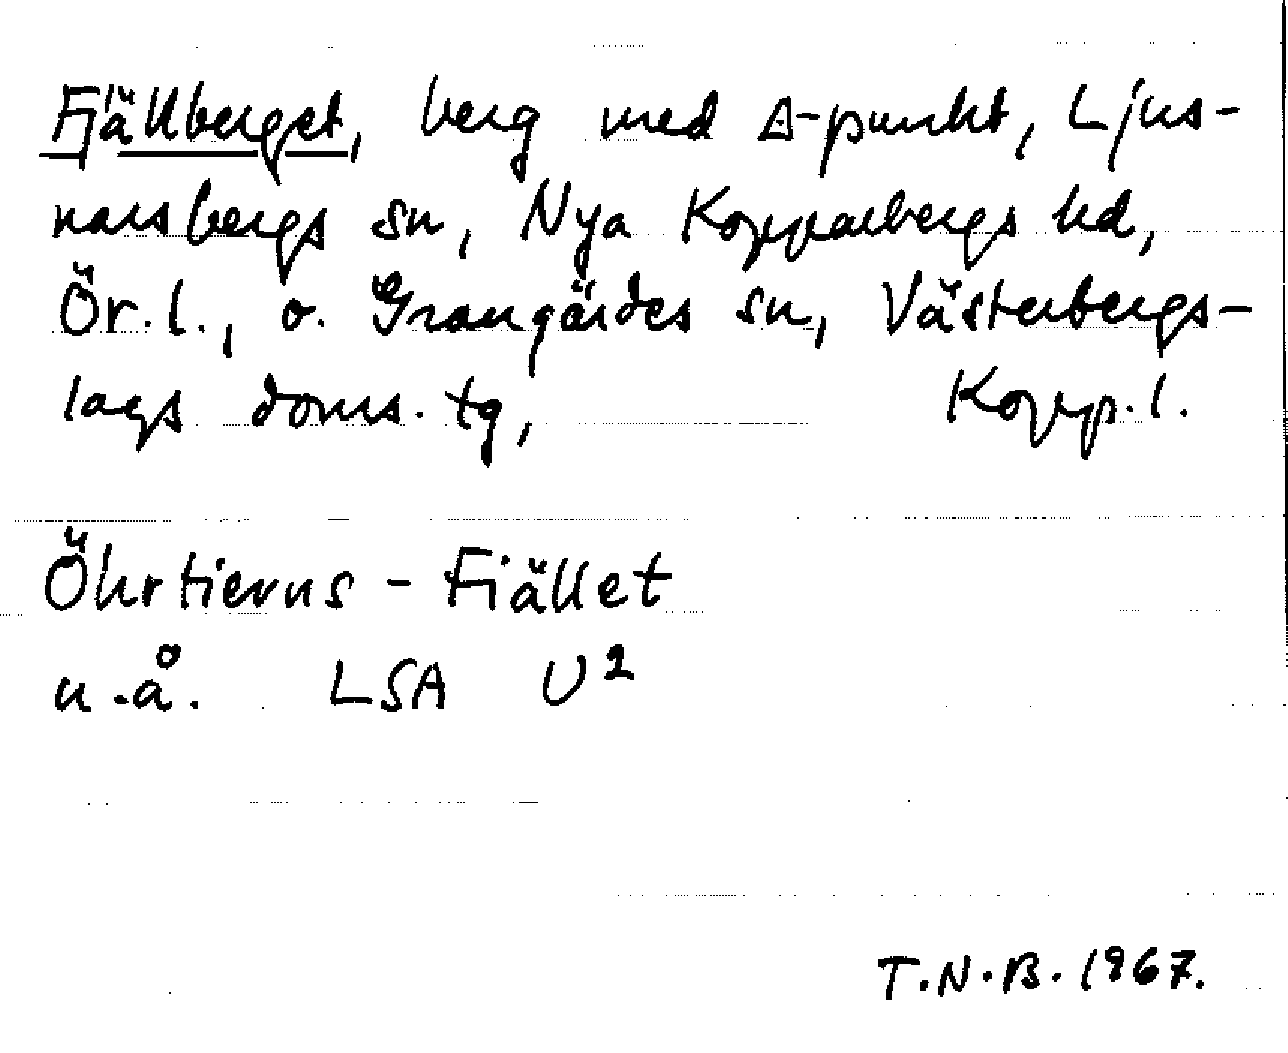 Fjällberget, berg med Δ-punkt, Ljus-
narsbergs sn, Nya Kopparbergs hd,
Ör.l., o. Grangärdes sn, Västerbergs-
lags doms. tg, Kopp.l.
Öhrtierns-Fiället
u.å. LSA U2
T.N.B. 1967.